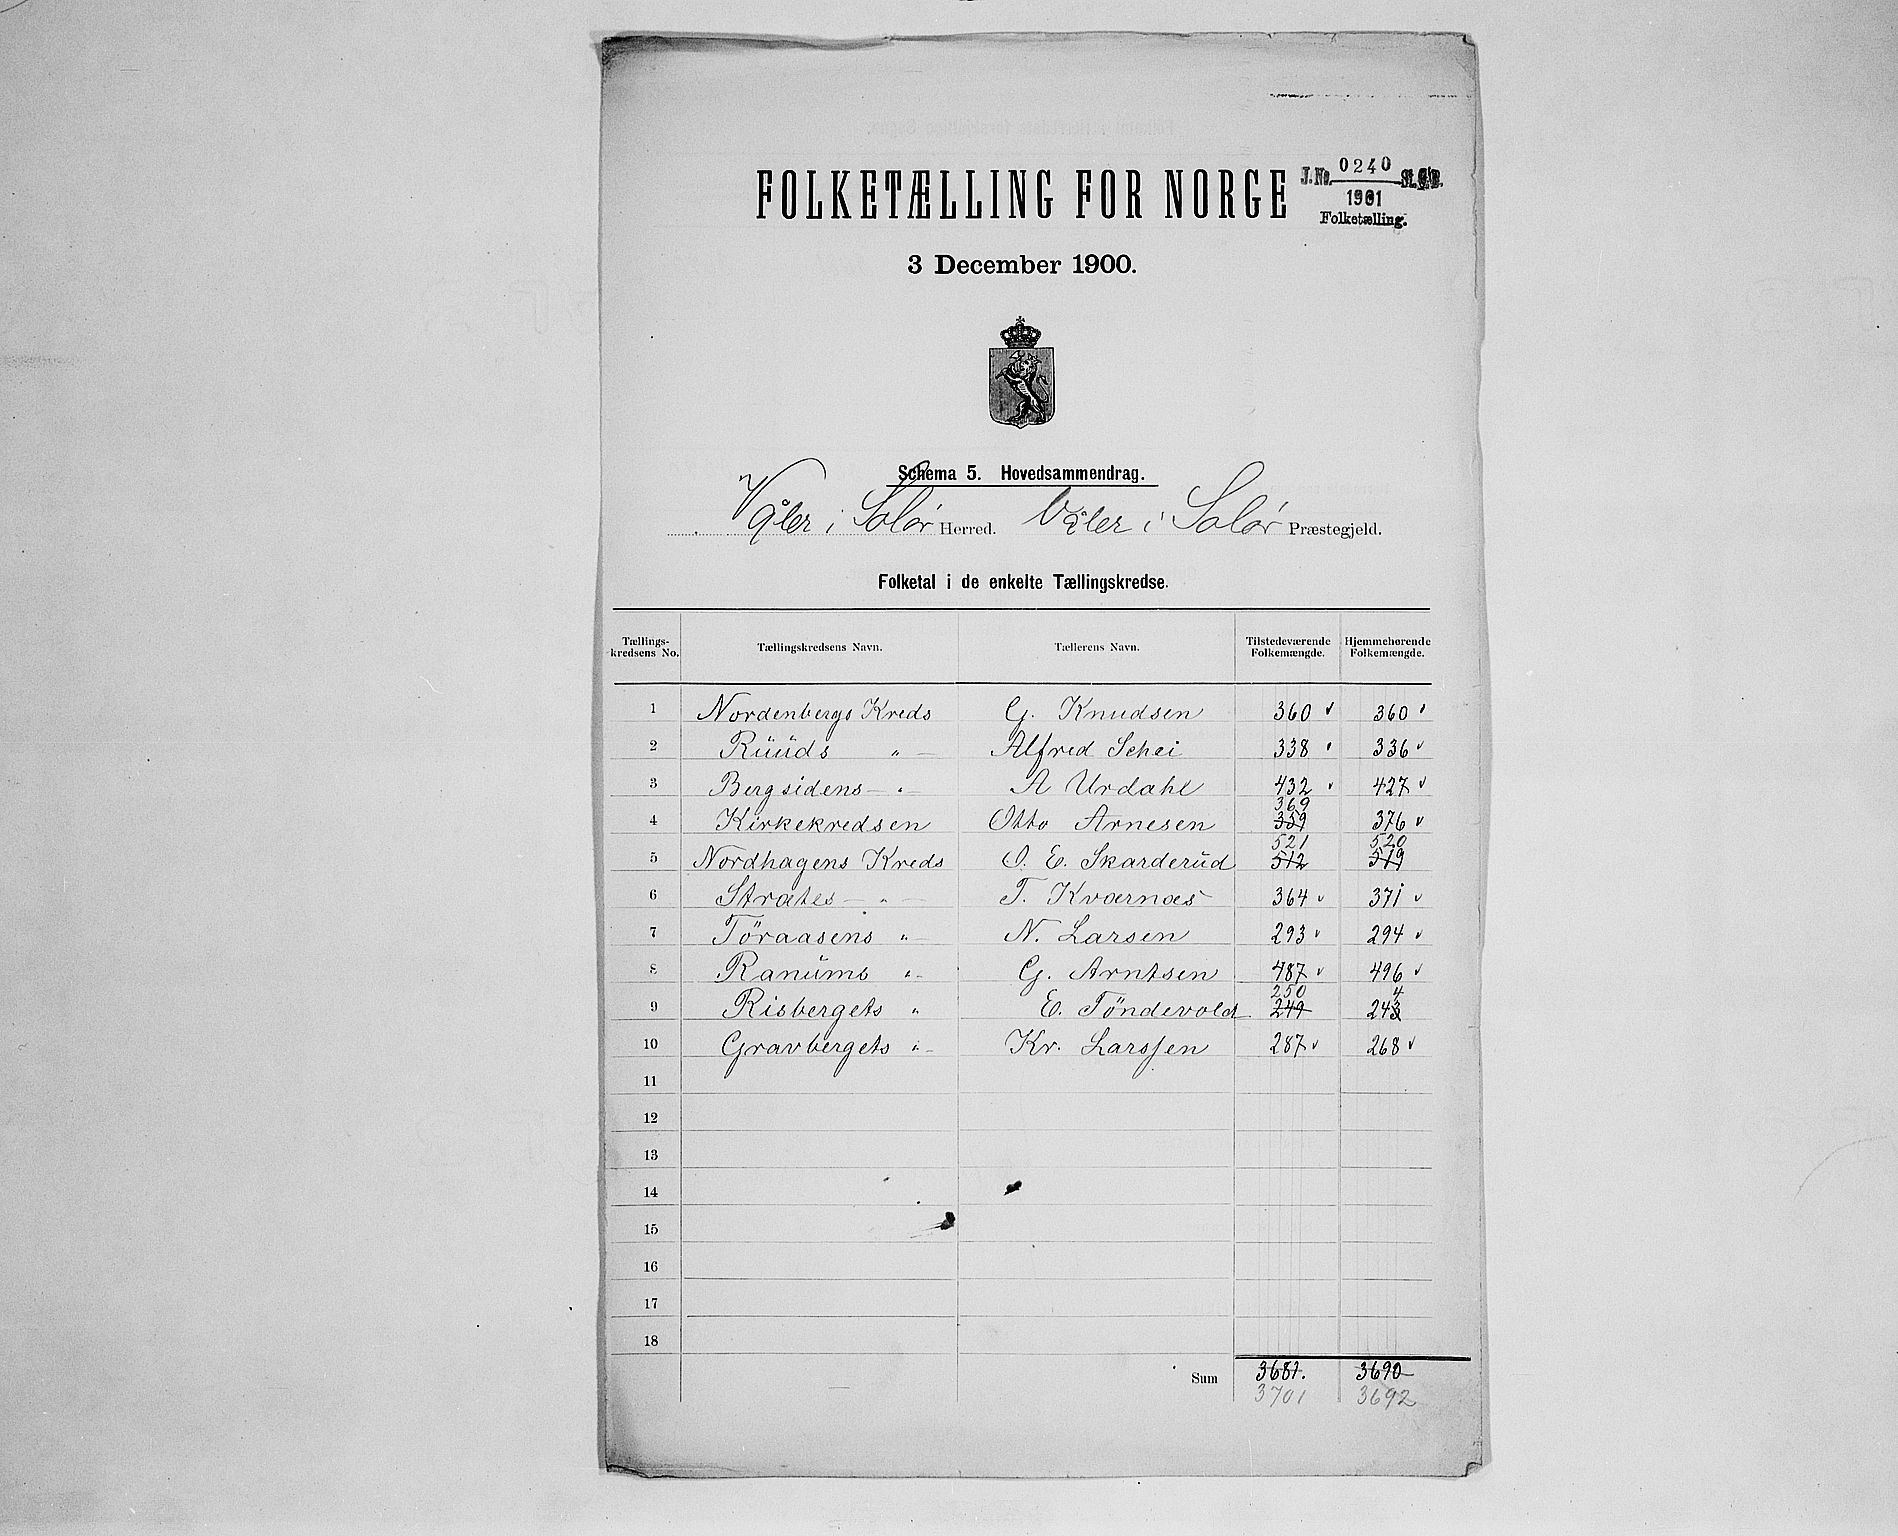 FOLKETÆLLING FOR NORGE
J. No. 0240 St. C. B.
1901
Folketælling.
3 December 1900.
Schema 5. Hovedsammendrag.
Våler i Solør Herred. Våler i Solør Præstegjeld.
Folketal i de enkelte Tællingskredse.
Tællings-kredsens No. Tællingskredsens Navn. Tællerens Navn. Tilstedeværende Folkemængde. Hjemmehørende Folkemængde.
1 Nordenbergs Kreds G. Knudsen 360 360
2 Ruuds " — Alfred Schei 338 336
3 Bergsidens — " — A Urdahl 432 427
369
4 Kirkekredsen Otto Arnesen 359 376
521 520
5 Nordhagens Kreds O. E. Skarderud 512 519
6 Strætes — " — T. Kværnæs 364 371
7 Töraasens " — N. Larsen 293 294
8 Ranums " - G. Arntsen 487 496
250 4
9 Risbergets " E. Töndevold 249 243
10 Gravbergets " - Kr. Larssen 287 268
11
12
13
14
15
16
17
18
Sum 3681. 3690
3701 3692